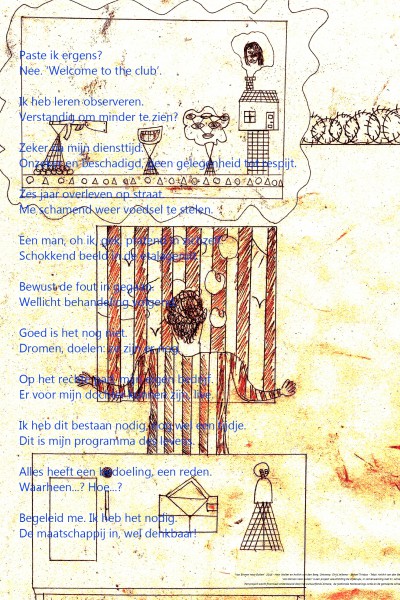 Paste ik ergens?
Nee. 'Welcome to the club'.
Ik heb leren observeren.
Verstandig om minder te zien?
Zeker na mijn diensttijd.
Onzeker en beschadigd, geen gelegenheid tot respijt.
Zes jaar overleven op straat.
Me schamend weer voedsel te stelen.
Een man, oh ik, gek, pratend in zichzelf.
Schokkend beeld in de etalageruit.
Bewust de fout in gegaan.
Wellicht behandeling volgend.
Goed is het nog niet.
Dromen, doelen: ze zijn er nog.
Op het rechte pad, mijn eigen bedrijf.
Er voor mijn dochter kunnen zijn, live.
Ik heb dit bestaan nodig, nog wel een tijdje.
Dit is mijn programma des levens.
Alles heeft een bedoeling, een reden.
Waarheen...? Hoe...?
Begeleid me. Ik heb het nodig.
De maatschappij in, wel denkbaar!